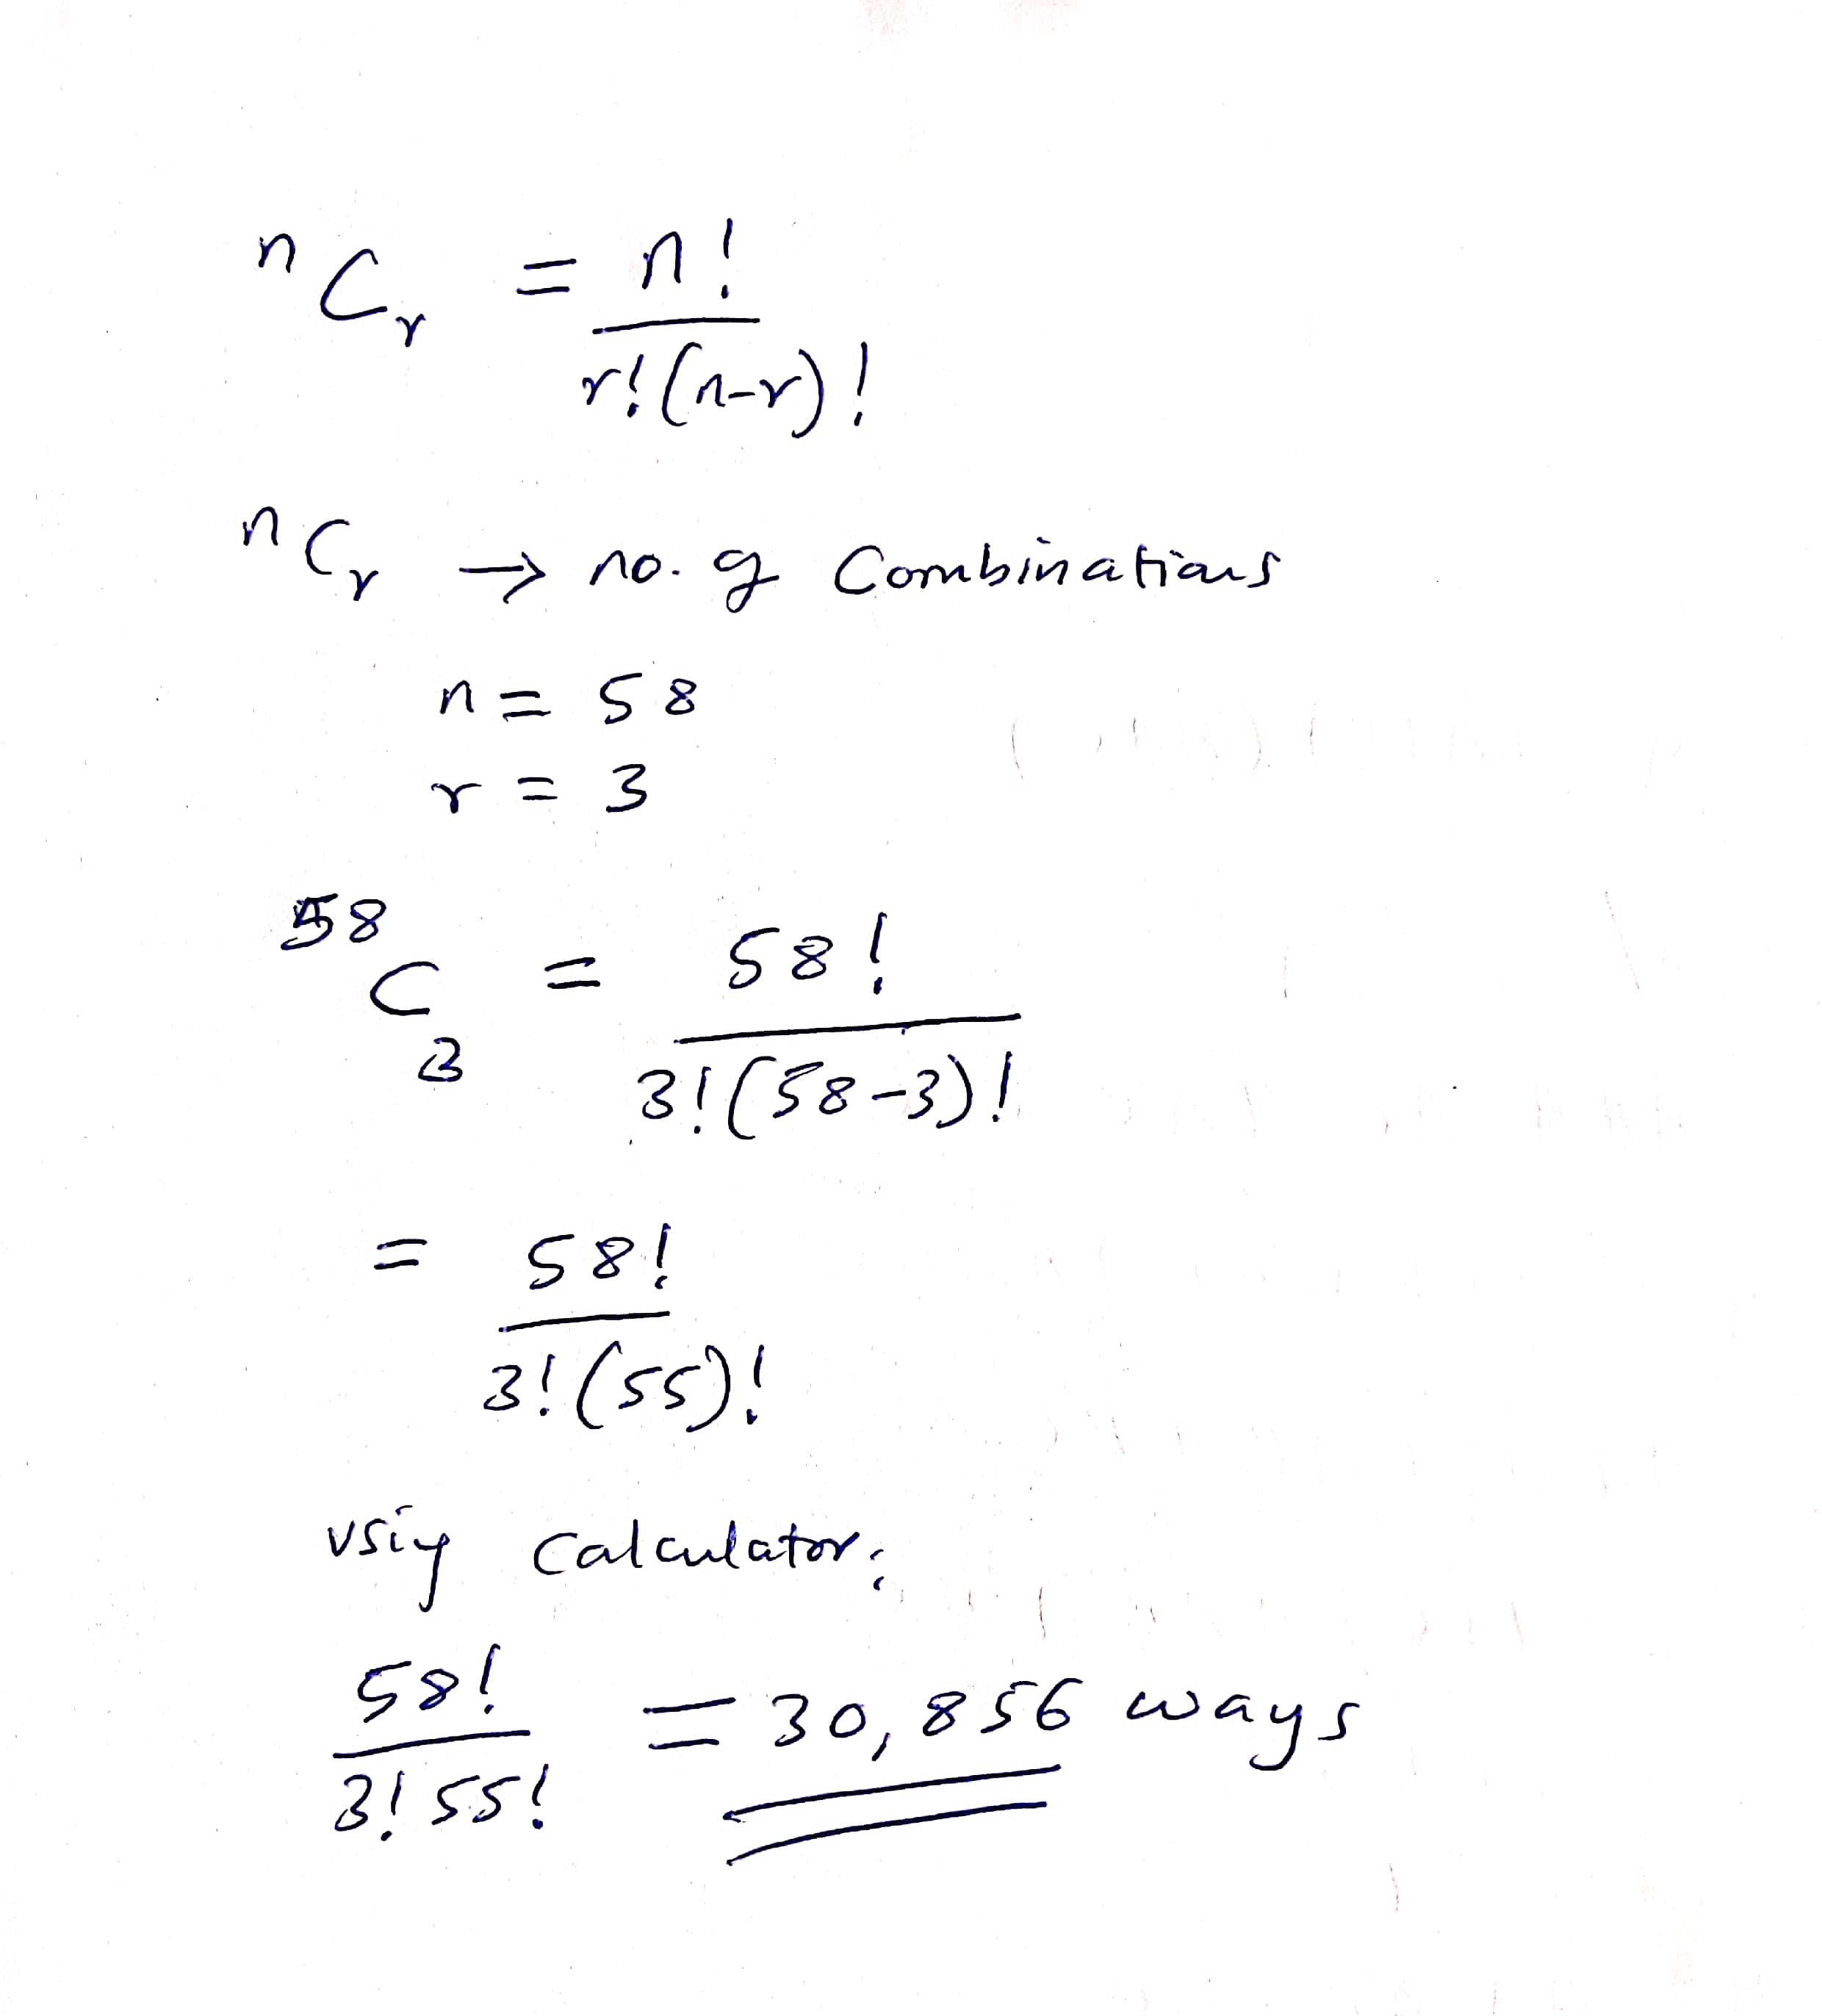 nCr = n!
r!(n-r)!
nCr → no. of Combinations
n = 58
r = 3
58C3 = 58!
3!(58-3)!
= 58!
3!(55)!
using calculator:
58!
3! 55!
= 30,856 ways